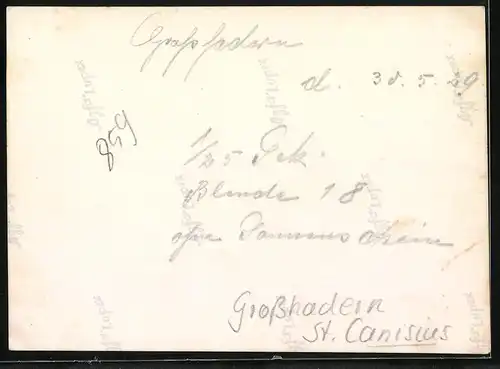 Großhadern
d. 30. 5. 29
859
1/25 Sek.
Blende 18
ohne Sonnenschein
Großhadern
St. Canisius